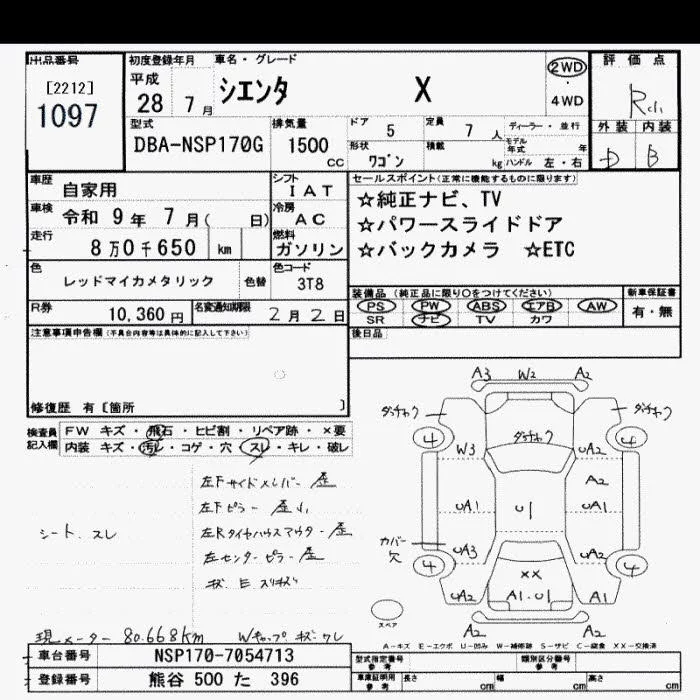 出品番号
[2212]
1097
初度登録年月
平成
28 7 月
車名・グレード
シエンタ X
2WD
・
4WD
評価点
R
外装 内装
D B
型式
DBA-NSP170G
排気量
1500 cc
ドア 5
定員 7 人
形状 ワゴン
積載 kg
ディーラー・並行
モデル年式 年
ハンドル 左・右
車歴 自家用
車検 令和 9 年 7 月( 日)
走行 8 万 0 千 650 km
シフト IAT
冷房 AC
燃料 ガソリン
セールスポイント(正常に機能するものに限ります)
☆純正ナビ、TV
☆パワースライドドア
☆バックカメラ ☆ETC
色 レッドマイカメタリック
色替
色コード 3T8
R券 10,360 円
名変通知期限 2 月 2 日
装備品 (純正品に限り○をつけてください)
PS PW ABS エアB AW
SR ナビ TV カワ
新車保証書
有・無
後日品
注意事項申告欄(不具合内容等は具体的に記入して下さい)
修復歴 有 [箇所 ]
検査員記入欄
FW キズ・飛石・ヒビ割・リペア跡・×要
内装 キズ・汚レ・コゲ・穴・スレ・キレ・破レ
シート スレ
左Fサイドメンバー 歪
左Fピラー 歪
左Rタイヤハウスアウター 歪
左センターピラー 歪
現メーター 80.668km
A3 W2 A2
ダッチャク
4
ダッチャク
ダッチャク
4
W3
UA2
A2
UA1
U1
UA1
カバー欠
UA3
UA2
4
4
XX
UA2
A1.U1
A1
A2
A2
スペア
A-キズ E-エクボ U-凹み W-補修跡 S-サビ C-腐食 XX-交換済
車台番号 NSP170-7054713
登録番号 熊谷 500 た 396
型式指定番号 参考
類別区分番号 参考
車庫証明用 参考
長さ cm
幅 cm
高さ cm